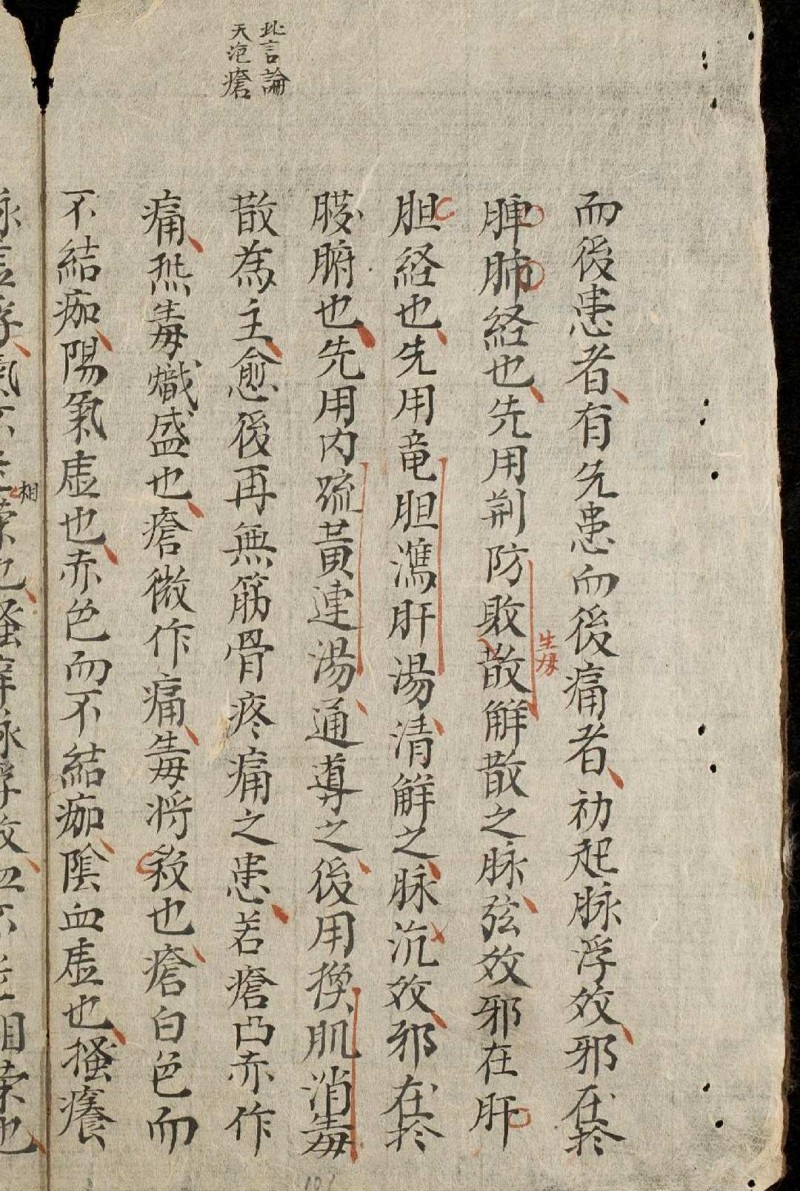 此言論
天疱瘡
而後患者有先患而後痛者初起脉浮效邪在於
脾肺経也先用荆防敗散解散之脉弦效邪在肝
胆経也先用竜胆瀉肝湯清解之脉沉效邪在於
臓腑也先用内疏黃連湯通導之後用換肌消毒
散為主愈後再無筋骨疼痛之患若瘡凸赤作
痛熱毒熾盛也瘡微作痛毒将殺也瘡白色而
不結痂陽氣虚也赤色而不結痂陰血虚也搔癢
相